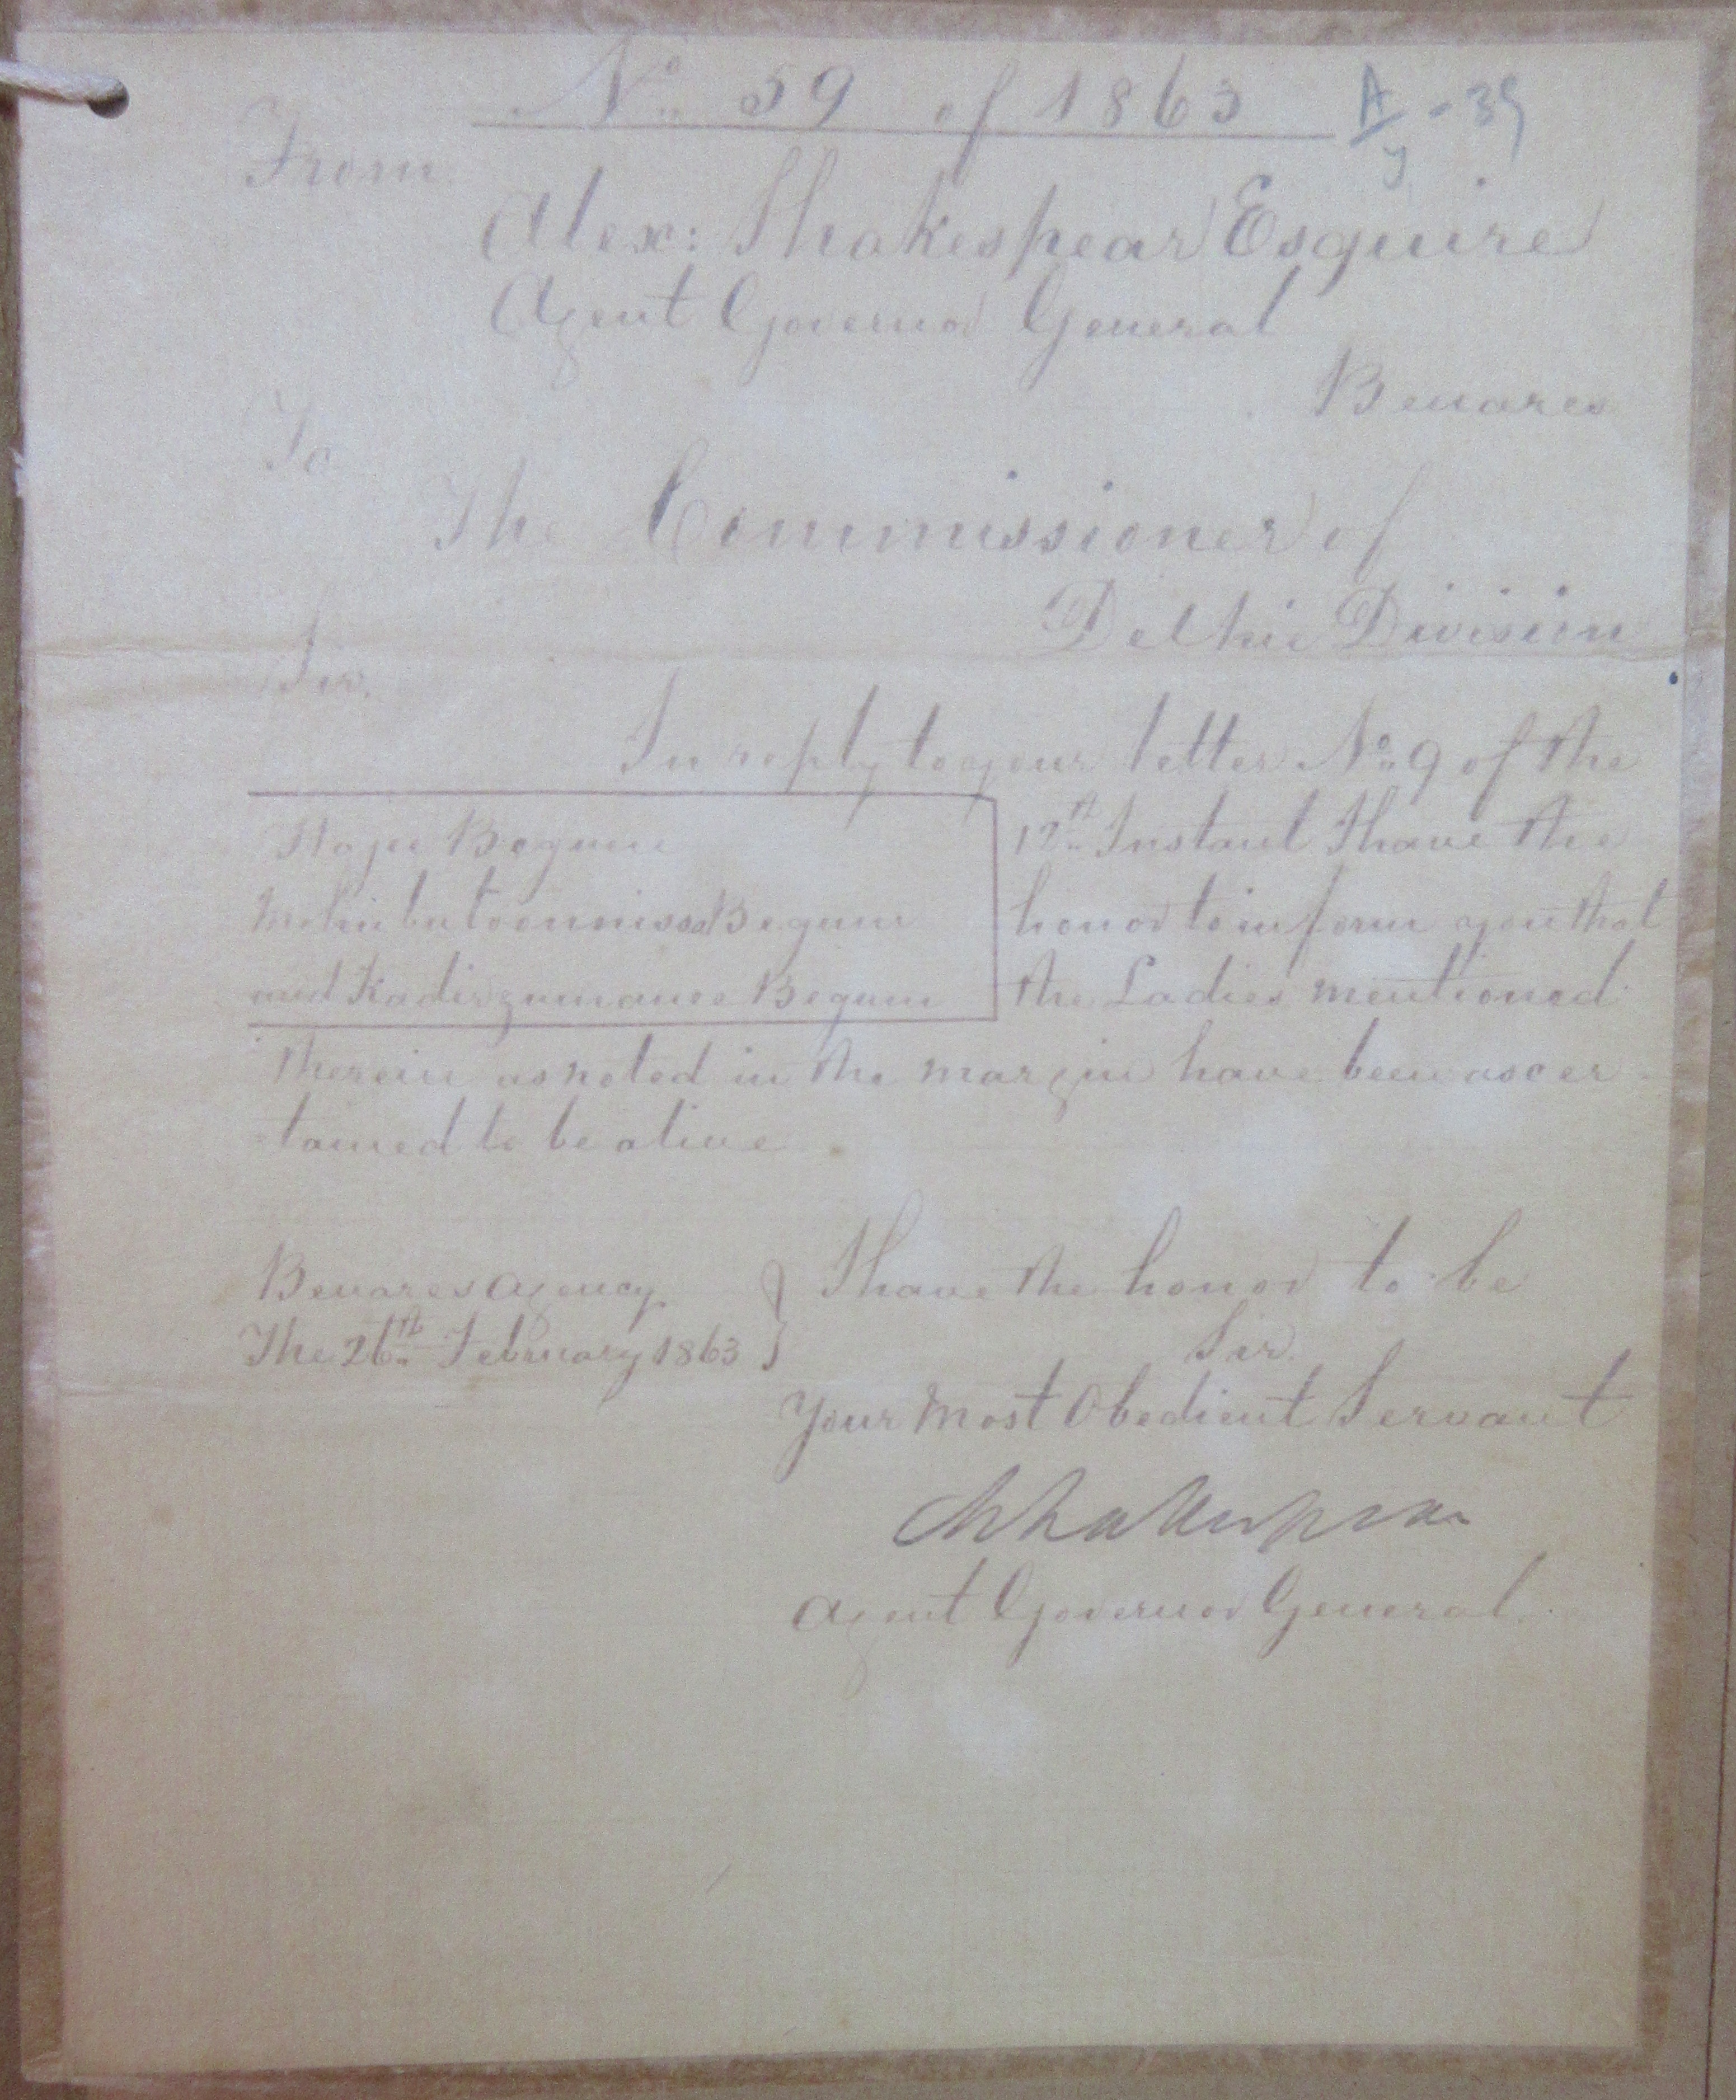 No 59 of 1863 A - 39
From
Alex: Shakespear Esquire
Agent Governor General
Benares
To
The Commissioner of
Delhie Division
Sir,
In reply to your letter No 9 of the
12th Instant I have the
honor to inform you that
the Ladies mentioned
Begum
Begum
and Begum
therein as noted in the margin have been ascer-
tained to be alive
Benares Agency
The 26th February 1863
I have the honor to be
Sir
Your Most Obedient Servant
AShakespear
Agent Governor General.